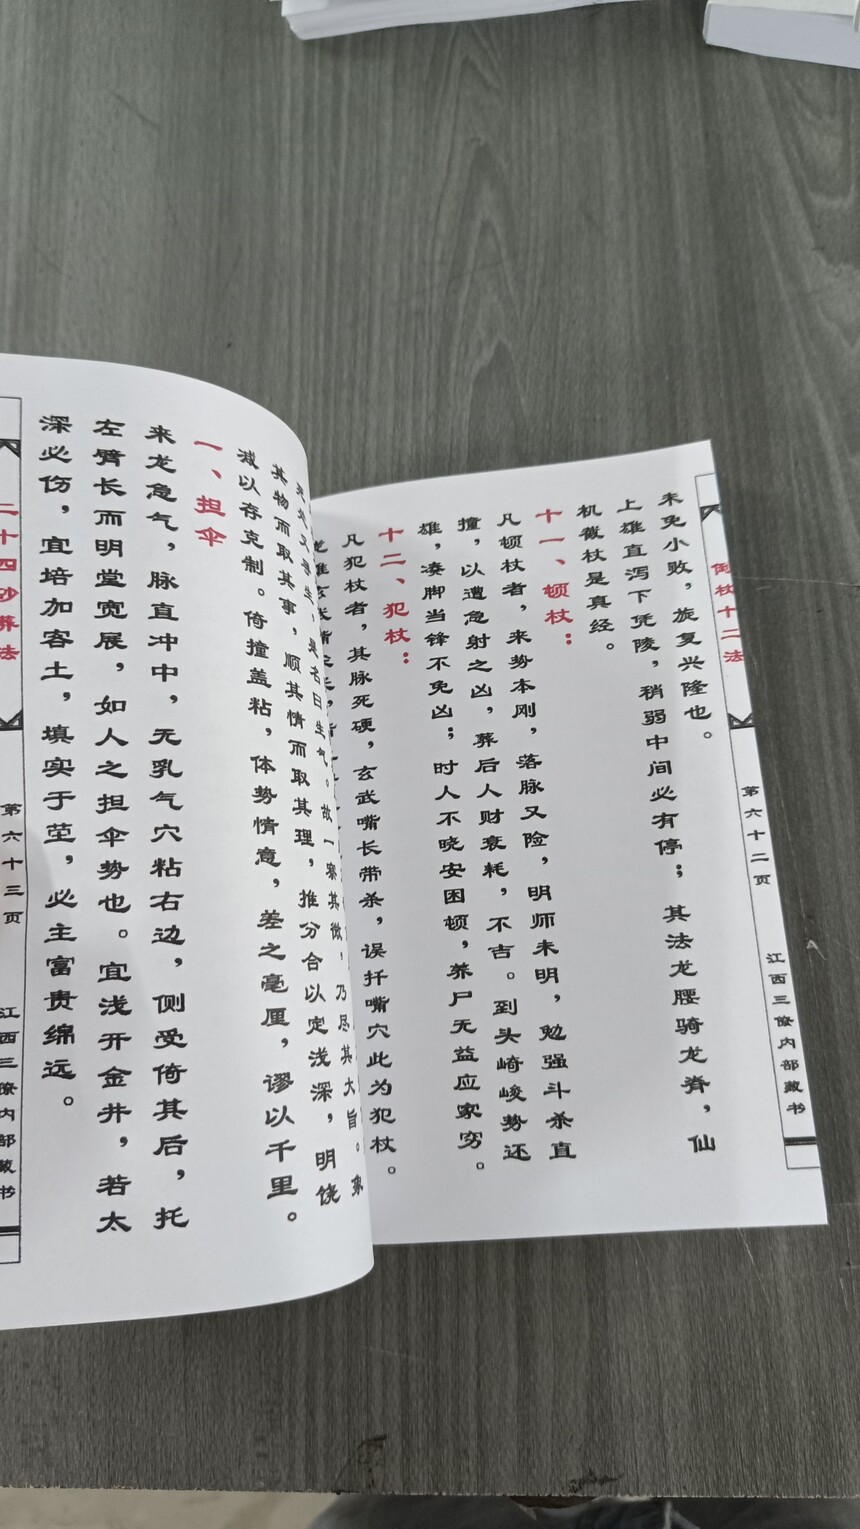 倒杖十二法
第六十二页
江西三僚内部藏书
未免小败，旋复兴隆也。
上雄直泻下凭陵，稍弱中间必有停；其法龙腰骑龙脊，仙
机微杖是真经。
十一、顿杖：
凡顿杖者，来势本刚，落脉又险，明师未明，勉强斗杀直
撞，以遭急射之凶，葬后人财衰耗，不吉。到头崎峻势还
雄，凑脚当锋不免凶；时人不晓安困顿，养尸无益应家穷。
十二、犯杖：
凡犯杖者，其脉死硬，玄武嘴长带杀，误扦嘴穴此为犯杖。
是名曰生气。故一察其微，乃尽其大旨。
其物而取其事，顺其情而取其理，推分合以定浅深，明饶
减以存克制。倚撞盖粘，体势情意，差之毫厘，谬以千里。
一、担伞
来龙急气，脉直冲中，无乳气穴粘右边，侧受倚其后，托
左臂长而明堂宽展，如人之担伞势也。宜浅开金井，若太
深必伤，宜培加客土，填实于茔，必主富贵绵远。
二十四砂葬法
第六十三页
江西三僚内部藏书